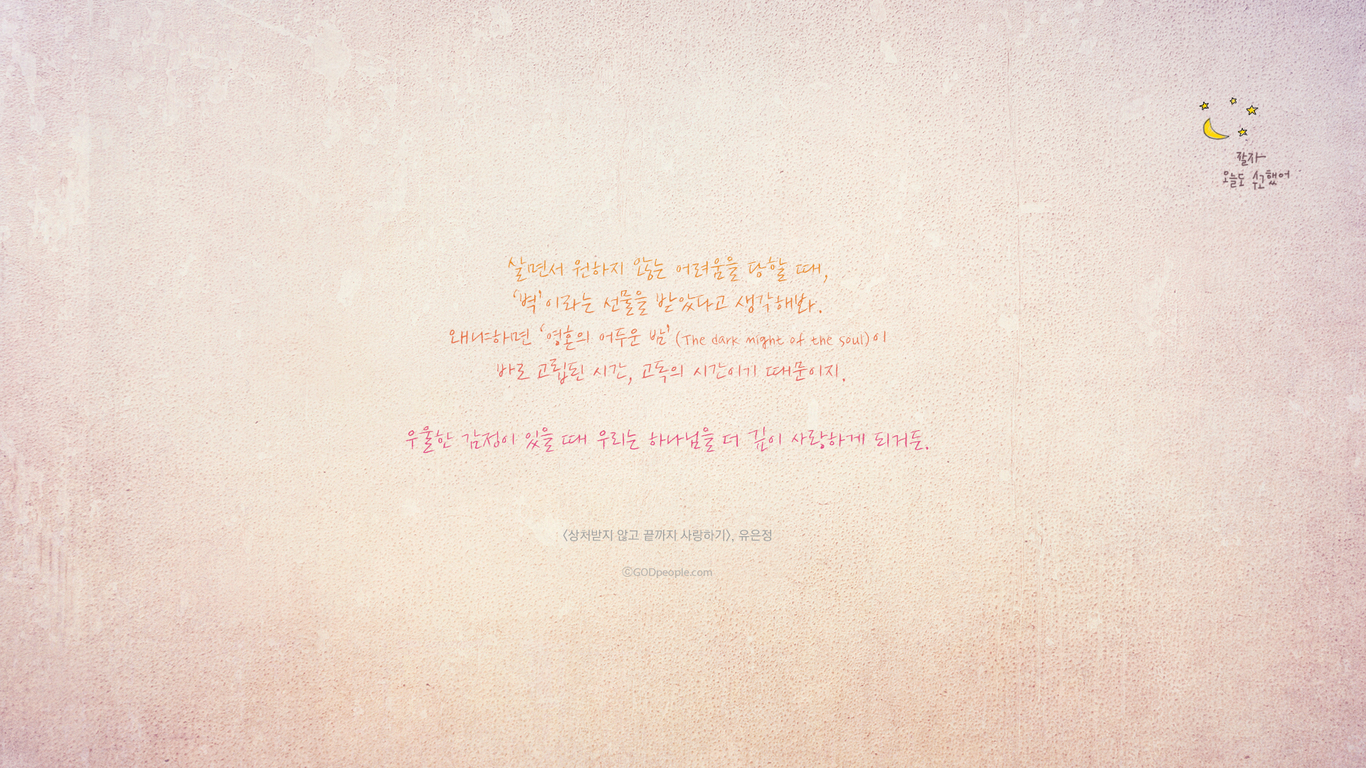 잘자~
오늘도 수고했어
살면서 원하지 않는 어려움을 당할 때,
'벽'이라는 선물을 받았다고 생각해봐.
왜냐하면 '영혼의 어두운 밤'(The dark night of the soul)이
바로 고립된 시간, 고독의 시간이기 때문이지.
우울한 감정이 있을 때 우리는 하나님을 더 깊이 사랑하게 되거든.
<상처받지 않고 끝까지 사랑하기>, 유은정
ⓒGODpeople.com